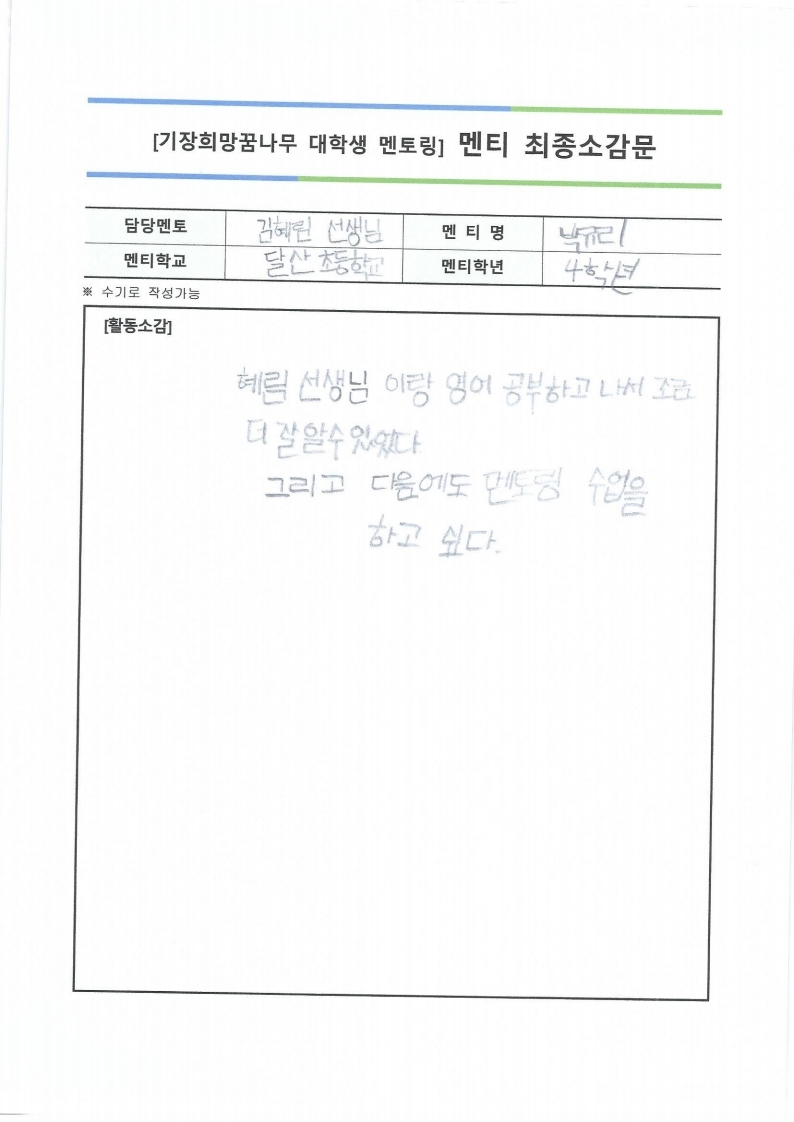 [기장희망꿈나무 대학생 멘토링] 멘티 최종소감문
담당멘토 김혜림 선생님 멘 티 명 박규리
멘티학교 달산 초등학교 멘티학년 4학년
※ 수기로 작성가능
[활동소감]
혜림 선생님 이랑 영어 공부하고 나서 조금
더 잘 알수 있었다
그리고 다음에도 멘토링 수업을
하고 싶다.